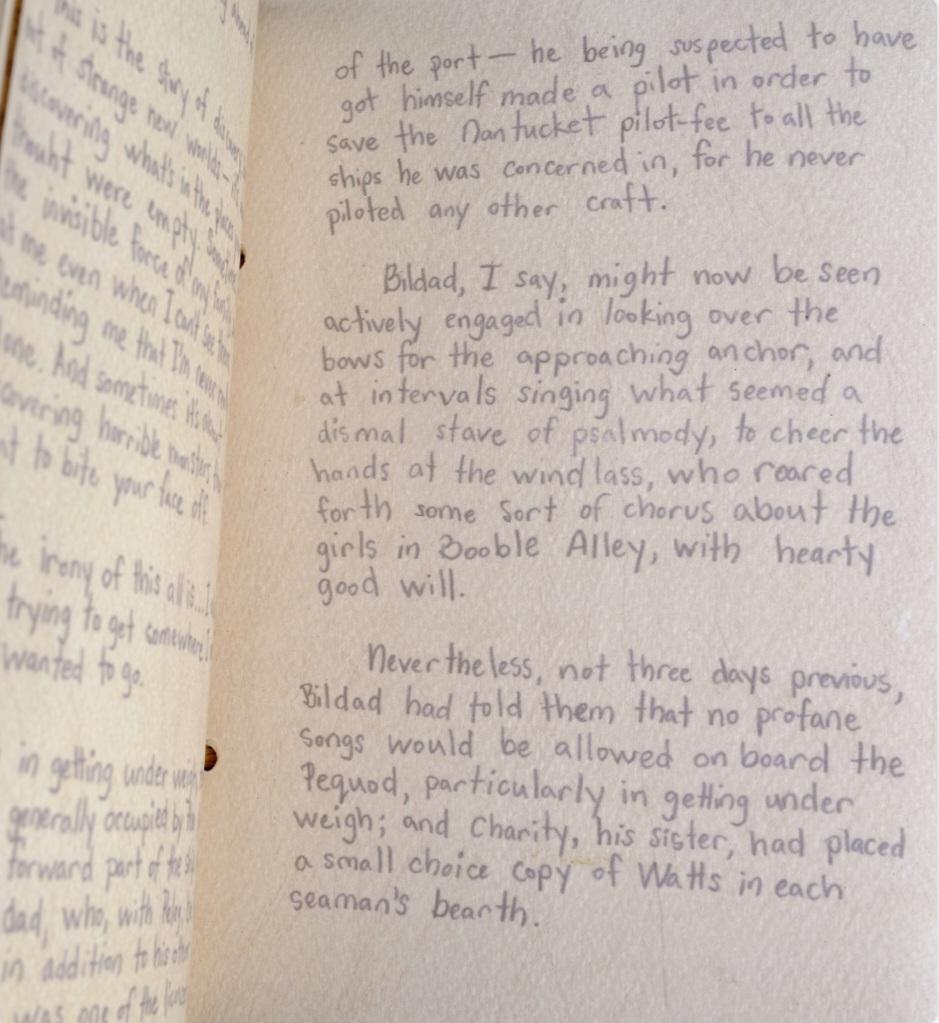 This is the story of
out of strange new worlds—
discovering what's in the places
thought were empty. Sometimes
the invisible force of my
at me even when I can't see them
reminding me that I'm never
alone. And sometimes it's about
horrible monsters
to bite your face off.
the irony of this all is...I
trying to get somewhere I
wanted to go.
in getting under weigh
generally occupied by
forward part of the
dad, who, with
in addition to his
was one of the
of the port — he being suspected to have
got himself made a pilot in order to
save the Nantucket pilot-fee to all the
ships he was concerned in, for he never
piloted any other craft.
Bildad, I say, might now be seen
actively engaged in looking over the
bows for the approaching anchor, and
at intervals singing what seemed a
dismal stave of psalmody, to cheer the
hands at the windlass, who roared
forth some sort of chorus about the
girls in Booble Alley, with hearty
good will.
Nevertheless, not three days previous,
Bildad had told them that no profane
songs would be allowed on board the
Pequod, particularly in getting under
weigh; and Charity, his sister, had placed
a small choice copy of Watts in each
seaman's bearth.